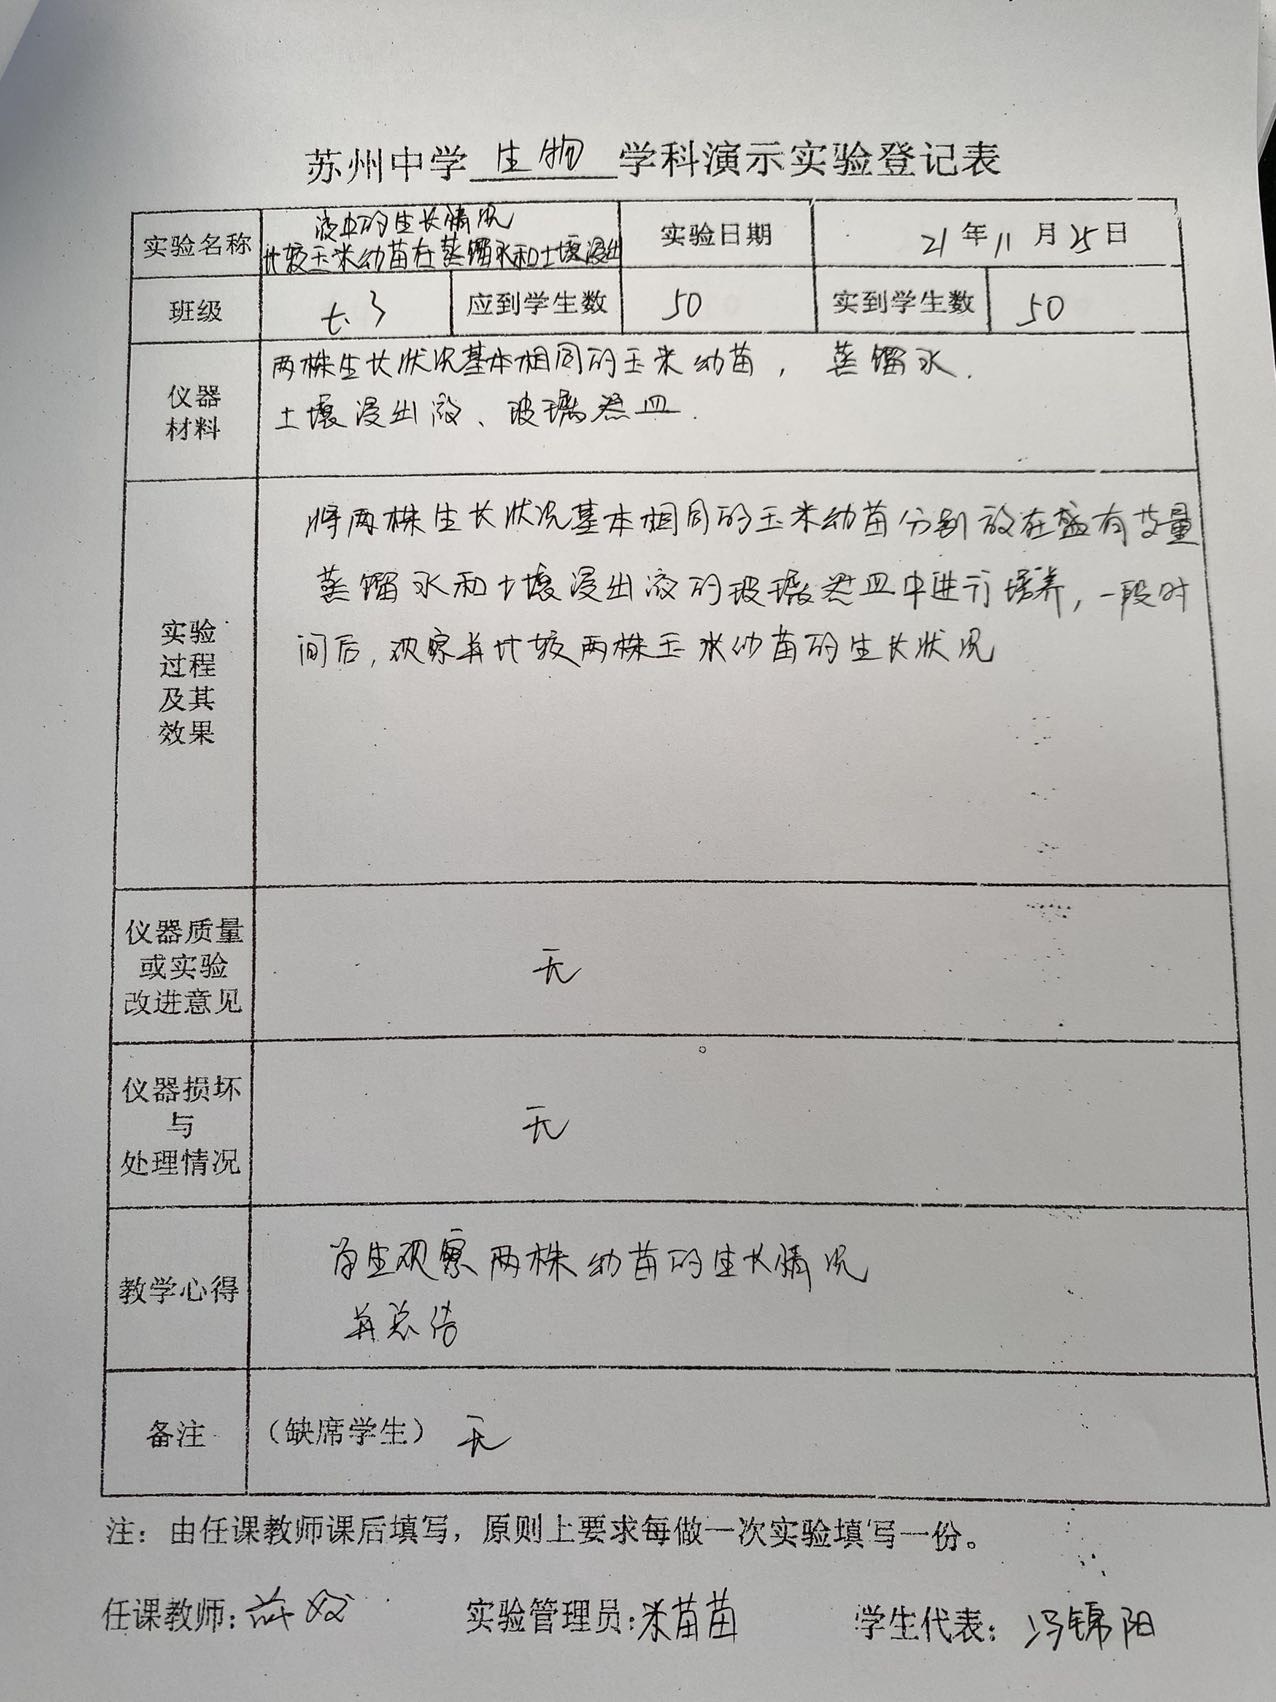 苏州中学 生物 学科演示实验登记表
实验名称
液中的生长情况
比较玉米幼苗在蒸馏水和土壤浸出
实验日期
21年11月25日
班级
七.3
应到学生数
50
实到学生数
50
仪器
材料
两株生长状况基本相同的玉米幼苗，蒸馏水.
土壤浸出液、玻璃器皿.
实验
过程
及其
效果
将两株生长状况基本相同的玉米幼苗分别放在盛有等量
蒸馏水和土壤浸出液的玻璃器皿中进行培养，一段时
间后，观察并比较两株玉米幼苗的生长状况
仪器质量
或实验
改进意见
无
仪器损坏
与
处理情况
无
教学心得
学生观察两株幼苗的生长情况
并总结
备注
（缺席学生）无
注：由任课教师课后填写，原则上要求每做一次实验填写一份。
任课教师：
实验管理员：米苗苗
学生代表：冯锦阳